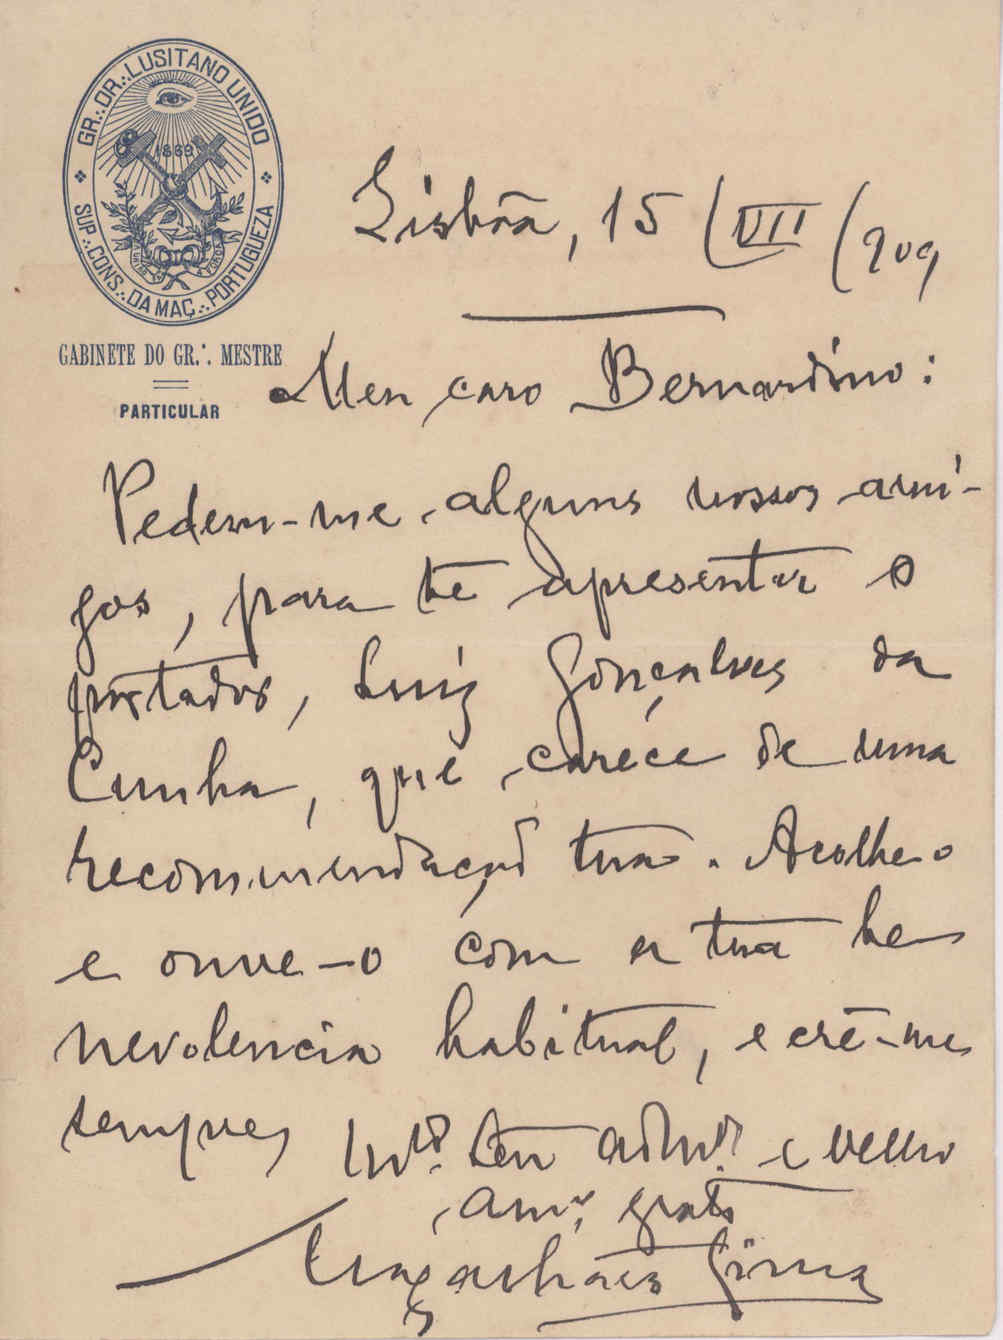 GR∴ OR∴ LUSITANO UNIDO
1869
SUP∴ CONS∴ DA MAÇ∴ PORTUGUEZA
GABINETE DO GR∴ MESTRE
PARTICULAR
Lisbôa, 15/VII/909
Meu caro Bernardino:
Pedem-me alguns nossos ami-
gos, para te apresentar o
portador, Luiz Gonçalves da
Cunha, que caréce de uma
recommendação tua. Acolhe-o
e ouve-o com a tua be
nevolencia habitual, e crê-me
sempre,
teu admor. e velho
amo. grato
Magalhães Lima